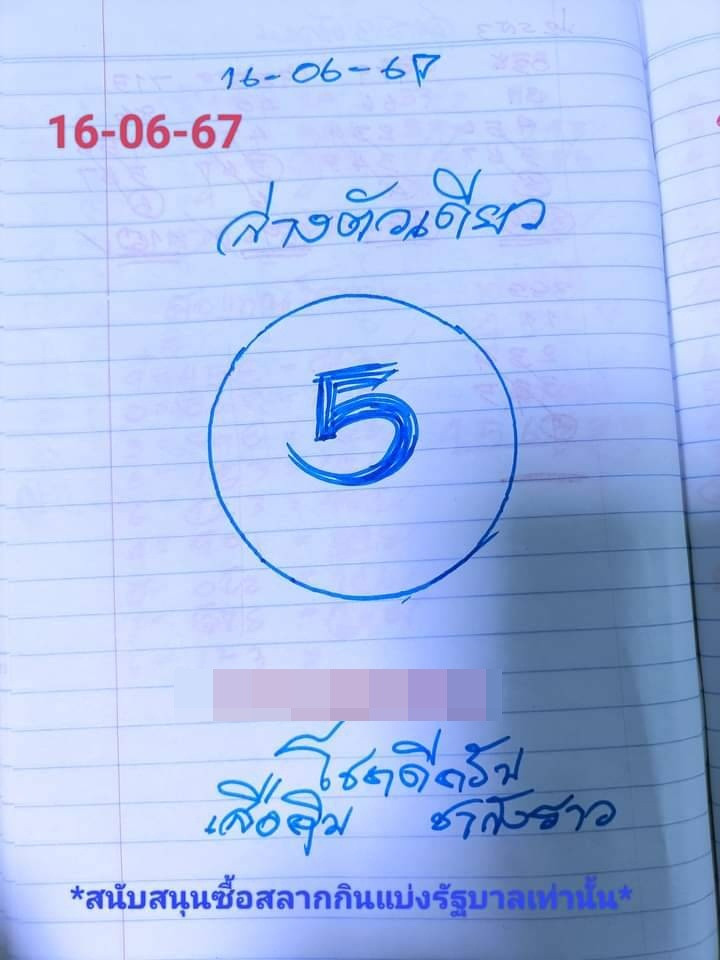 16-06-67
16-06-67
ล่างตัวเดียว
5
โชคดีครับ
เสือคุ้ม ชากังราว
*สนับสนุนซื้อสลากกินแบ่งรัฐบาลเท่านั้น*